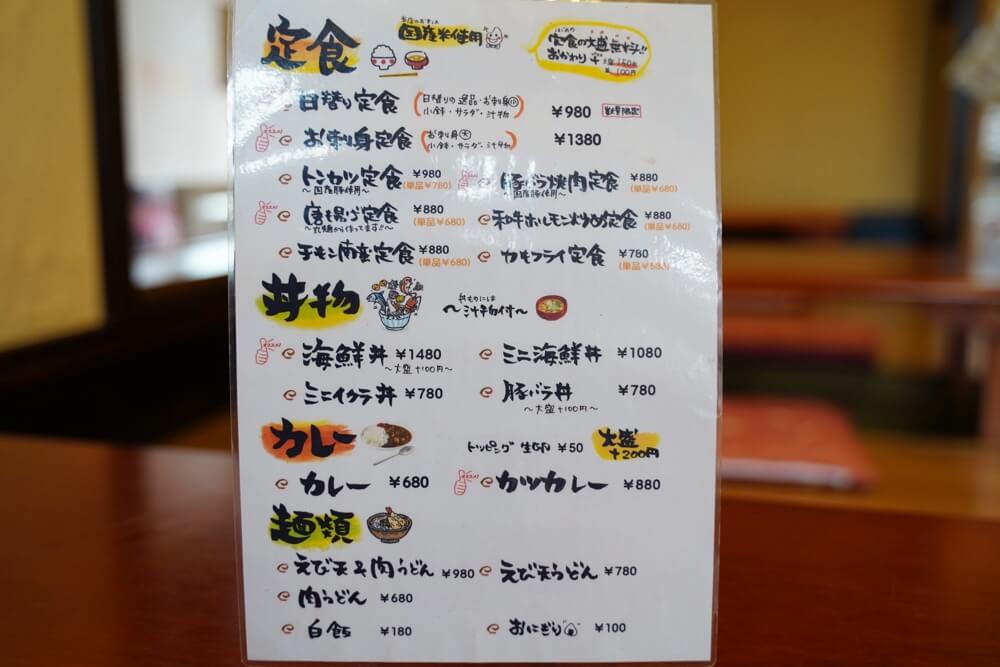 定食
国産米使用
定食の大盛無料!!
おかわり
150円
100円
日替り定食 (日替りの逸品・お刺身小 小鉢・サラダ・汁物) ¥980 数量限定
お刺身定食 (お刺身大 小鉢・サラダ・汁物) ¥1380
トンカツ定食 ¥980 (単品¥780)
～国産豚使用～
豚バラ焼肉定食 ¥880 (単品¥680)
～国産豚使用～
唐揚げ定食 ¥880 (単品¥680)
和牛ホルモン炒め定食 ¥880 (単品¥680)
チキン南蛮定食 ¥880 (単品¥680)
カキフライ定食 ¥780 (単品¥580)
丼物
丼ものには
～汁物付～
海鮮丼 ¥1480
～大盛+100円～
ミニ海鮮丼 ¥1080
ミニイクラ丼 ¥780
豚バラ丼 ¥780
～大盛+100円～
カレー
トッピング 生卵 ¥50
大盛
+200円
カレー ¥680
カツカレー ¥880
麺類
えび天&肉うどん ¥980
えび天うどん ¥780
肉うどん ¥680
白飯 ¥180
おにぎり ¥100